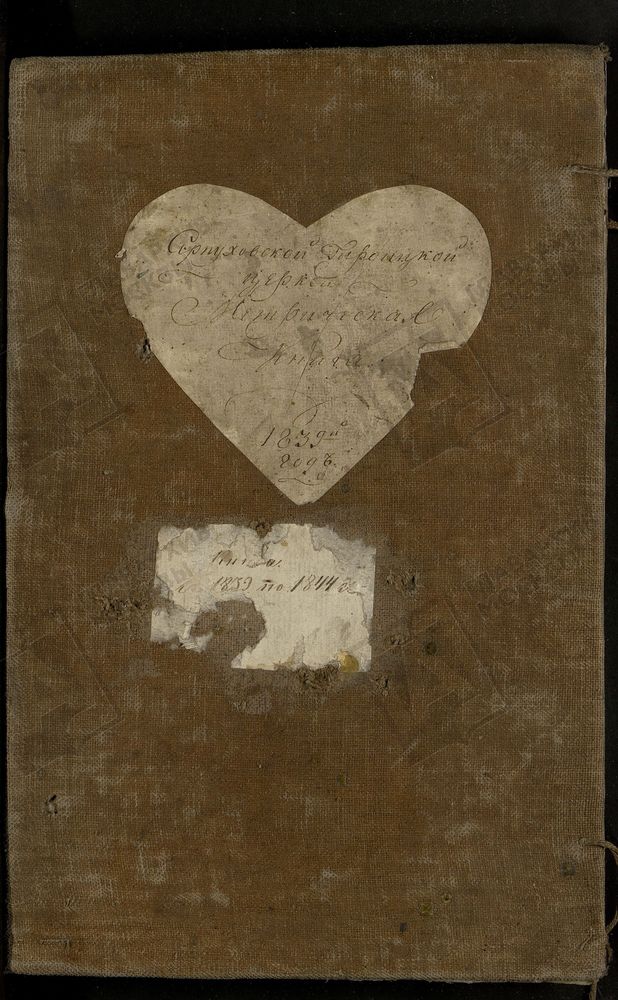 Серпуховской Тироицкой
церкви
Метрическая
Книга
1839го
годъ.
Книга
1839 по 1844 г